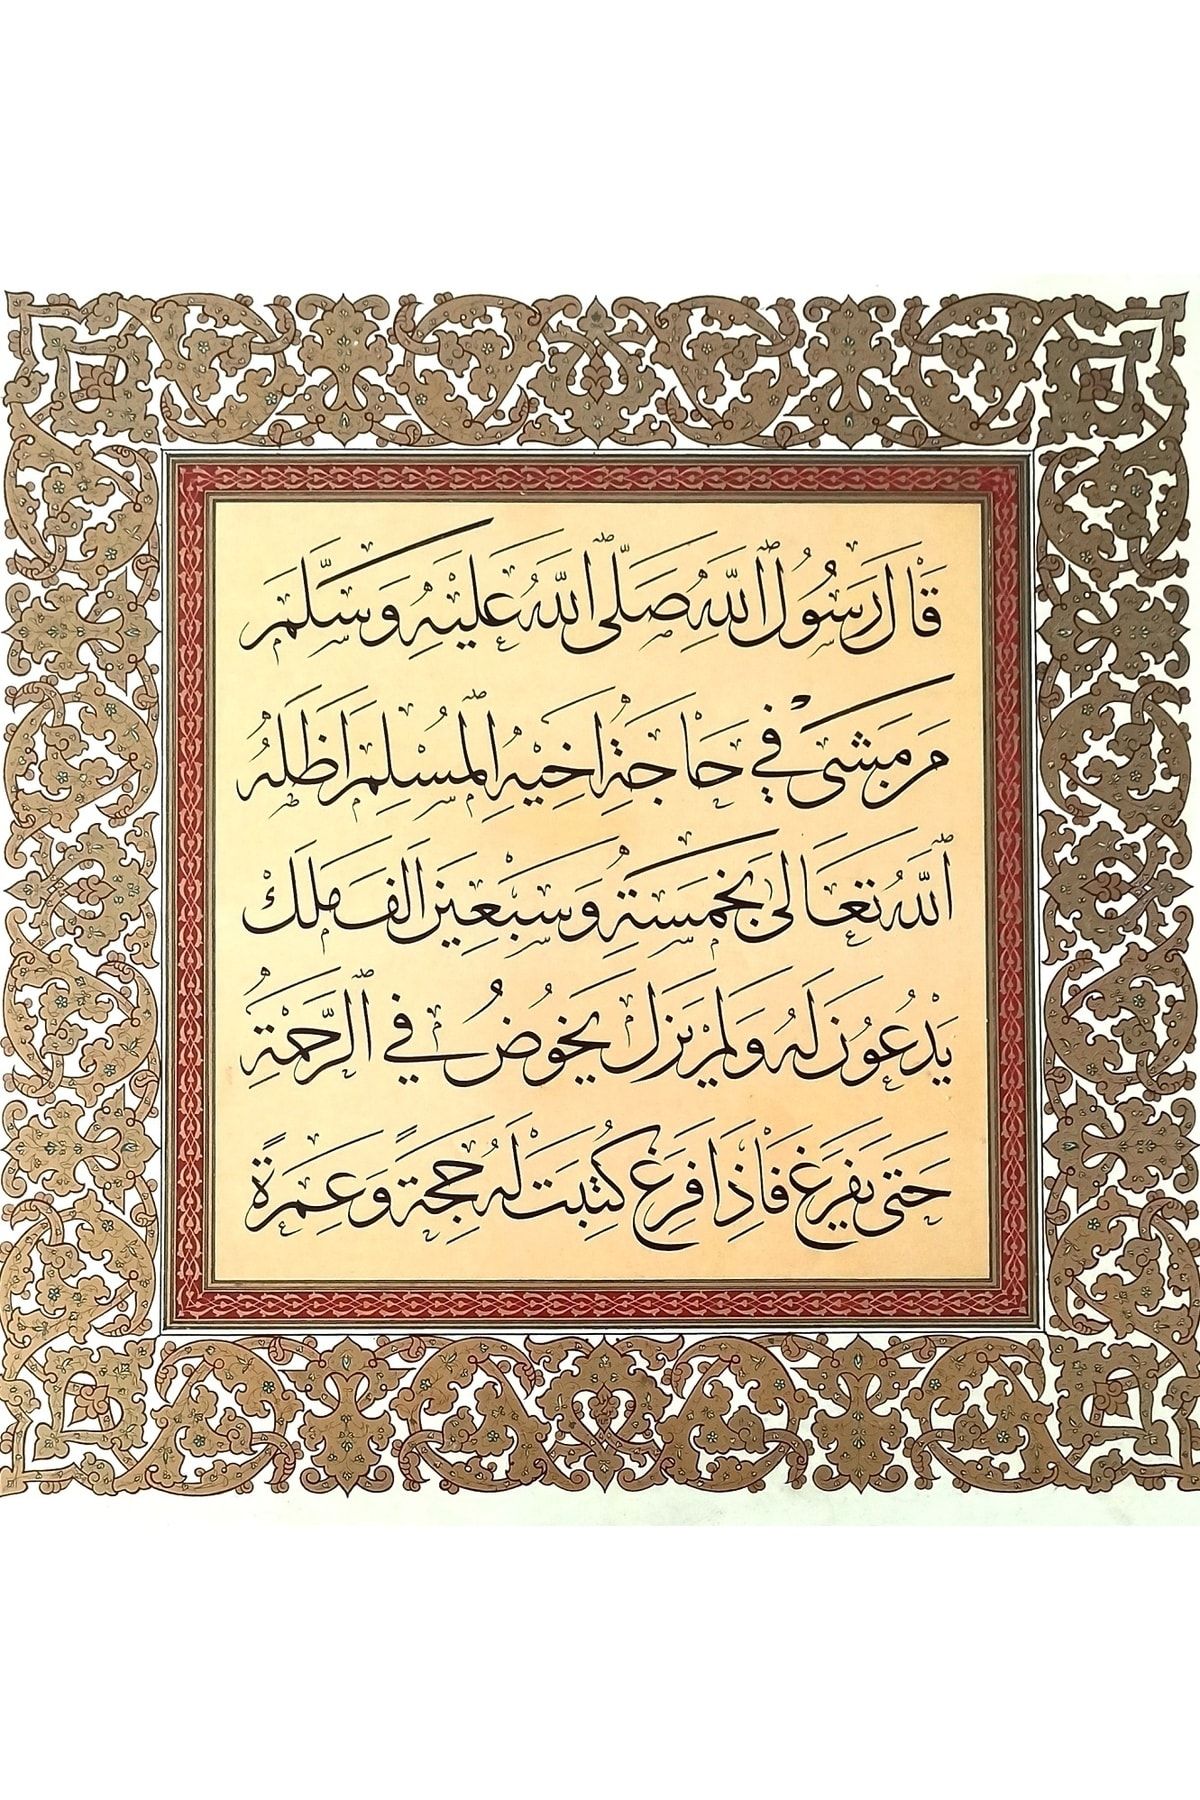 قَالَ رَسُولُ ٱللّٰهِ صَلَّى ٱللّٰهُ عَلَيْهِ وَسَلَّمَ
مَنْ مَشٰى فِي حَاجَةِ اَخِيهِ ٱلْمُسْلِمِ اَظَلَّهُ
ٱللّٰهُ تَعَالٰى بِخَمْسَةٍ وَسَبْعِينَ اَلْفَ مَلَكٍ
يَدْعُونَ لَهُ وَلَمْ يَزَلْ يَخُوضُ فِي ٱلرَّحْمَةِ
حَتّٰى يَفْرَغَ فَاِذَا فَرَغَ كُتِبَتْ لَهُ حَجَّةً وَعُمْرَةً